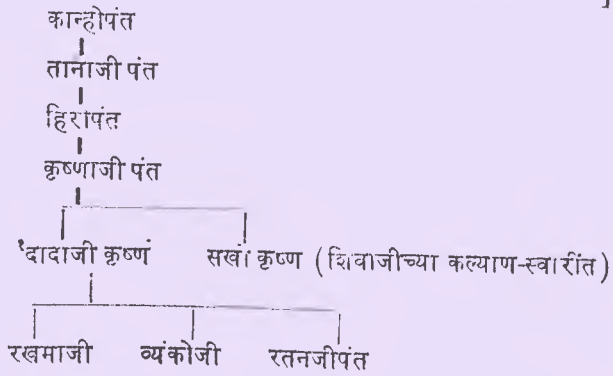 कान्होपंत
तानाजी पंत
हिरोपंत
कृष्णाजी पंत
दादाजी कृष्ण सखो कृष्ण (शिवाजीच्या कल्याण-स्वारींत)
रखमाजी व्यंकोजी रतनजीपंत